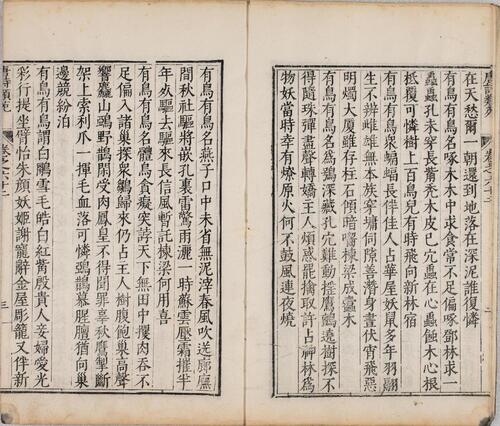 唐詩類苑
在天愁爾一朝還到地落在深泥誰復憐
有鳥有鳥名啄木木中求食常不足偏啄鄧林求一
蟲蟲孔未穿長觜禿木皮已穴蟲在心蟲蝕木心根
柢覆可憐樹上百鳥兒有時飛向新林宿
有鳥有鳥衆蝙蝠長伴佳人占華屋妖鼠多年羽翮
生不辨雌雄無本族穿墉伺隙善潛身晝伏宵飛惡
明燭大廈雖存柱石傾暗齧棟梁成蠹木
有鳥有鳥名爲鴞深藏孔穴難動搖鷹鸇遶樹探不
得隨珠彈盡聲轉嬌主人煩惑罷擒取許占神林爲
物妖當時幸有燎原火何不鼓風連夜燒
有鳥有鳥名燕子口中未省無泥滓春風吹送廊廡
間秋社驅將嵌孔裏雷驚雨灑一時蘇雲壓霜摧半
年死驅去驅來長信風暫託棟梁何用喜
有鳥有鳥名體烏貪癡突誶天下無田中攫肉吞不
足偏入諸巢探衆鶵歸來仍占主人樹腹飽巢高聲
響麤山鵶野鵲閑受肉鳳凰不得聞罪辜秋鷹掣斷
架上索利爪一揮毛血落可憐鵶鵲慕腥膻猶向巢
邊競紛泊
有鳥有鳥謂白鷴雪毛皓白紅觜殷貴人妾婦愛光
彩行提坐臂怡朱顏妖姬謝寵辭金屋彫籠又伴新
唐詩類苑
三